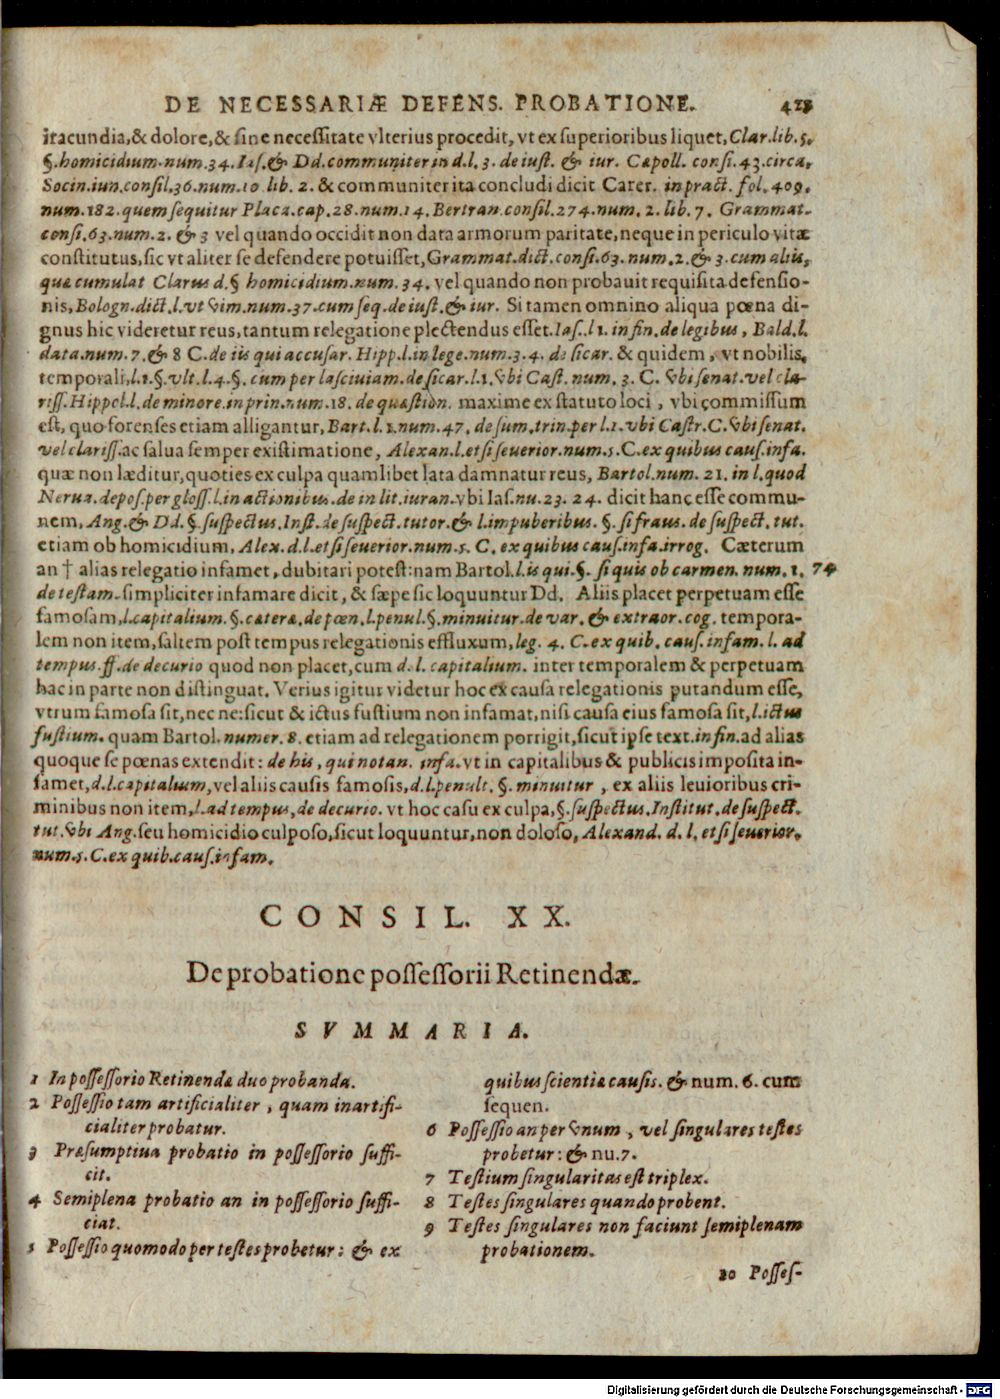 DE NECESSARIÆ DEFENS. PROBATIONE. 423
iracundia,& dolore,& sine necessitate vlterius procedit, vt ex superioribus liquet, Clar. lib. 5.
§. homicidium. num. 34. Ias. & Dd. communiter in d. l. 3. de iust. & iur. Capoll. consi. 43. circa.
Socin. iun. consil. 36. num. 10 lib. 2. & communiter ita concludi dicit Carer. in pract. fol. 409.
num. 182. quem sequitur Placa. cap. 28. num. 14. Bertran. consil. 274. num. 2. lib. 7. Grammat.
consi. 63. num. 2. & 3 vel quando occidit non data armorum paritate, neque in periculo vitæ
constitutus, sic vt aliter se defendere potuisset, Grammat. dict. consi. 63. num. 2. & 3. cum aliis,
quæ cumulat Clarus d. § homicidium. num. 34. vel quando non probauit requisita defensio-
nis, Bologn. dict. l. vt vim. num. 37. cum seq. de iust. & iur. Si tamen omnino aliqua pœna di-
gnus hic videretur reus, tantum relegatione plectendus esset. Ias. l 1. in fin. de legibus, Bald. l.
data. num. 7. & 8 C. de iis qui accusar. Hipp. l. in lege. num. 3. 4. de sicar. & quidem, vt nobilis,
temporali, l. 1. §. vlt. l. 4. §. cum per lasciuiam. de sicar. l. 1. vbi Cast. num. 3. C. vbi senat. vel cla-
riss. Hippol. l. de minore. in prin. num. 18. de quæstion. maxime ex statuto loci, vbi commissum
est, quo forenses etiam alligantur, Bart. l. 1. num. 47. de sum. trin. per l. 1. vbi Castr. C. vbi senat.
vel clariss. ac salua semper existimatione, Alexan. l. etsi seuerior. num. 5. C. ex quibus caus. infa.
quæ non læditur, quoties ex culpa quamlibet lata damnatur reus, Bartol. num. 21. in l. quod
Nerua. depos. per gloss. l. in actionibus. de in lit. iuran. vbi Ias. nu. 23. 24. dicit hanc esse commu-
nem, Ang. & Dd. §. suspectus. Inst. de suspect. tutor. & l. impuberibus. §. si fraus. de suspect. tut.
etiam ob homicidium, Alex. d. l. etsi seuerior. num. 5. C. ex quibus caus. infa. irrog. Cæterum
an † alias relegatio infamet, dubitari potest: nam Bartol. l. is qui. §. si quis ob carmen. num. 1. 74
de testam. simpliciter infamare dicit, & sæpe sic loquuntur Dd. Aliis placet perpetuam esse
famosam, l. capitalium. §. cætera. de pœn. l. penul. §. minuitur. de var. & extraor. cog. tempora-
lem non item, saltem post tempus relegationis effluxum, leg. 4. C. ex quib. caus. infam. l. ad
tempus. ff. de decurio quod non placet, cum d. l. capitalium. inter temporalem & perpetuam
hac in parte non distinguat. Verius igitur videtur hoc ex causa relegationis putandum esse,
vtrum famosa sit, nec ne: sicut & ictus fustium non infamat, nisi causa eius famosa sit, l. ictus
fustium. quam Bartol. numer. 8. etiam ad relegationem porrigit, sicut ipse text. in fin. ad alias
quoque se pœnas extendit: de his, qui notan. infa. vt in capitalibus & publicis imposita in-
famet, d. l. capitalium, vel aliis causis famosis, d. l. penult. §. minuitur, ex aliis leuioribus cri-
minibus non item, l. ad tempus, de decurio. vt hoc casu ex culpa, §. suspectus. Institut. de suspect.
tut. vbi Ang. seu homicidio culposo, sicut loquuntur, non doloso, Alexand. d. l. etsi seuerior.
num. 5. C. ex quib. caus. infam.
CONSIL. XX.
De probatione possessorii Retinendæ.
SVMMARIA.
1 In possessorio Retinendæ duo probanda.
2 Possessio tam artificialiter, quam inartifi-
cialiter probatur.
3 Præsumptiua probatio in possessorio suffi-
cit.
4 Semiplena probatio an in possessorio suffi-
ciat.
5 Possessio quomodo per testes probetur: & ex
quibus scientiæ causis. & num. 6. cum
sequen.
6 Possessio an per vnum, vel singulares testes
probetur: & nu. 7.
7 Testium singularitas est triplex.
8 Testes singulares quando probent.
9 Testes singulares non faciunt semiplenam
probationem.
10 Posses-
Digitalisierung gefördert durch die Deutsche Forschungsgemeinschaft - DFG